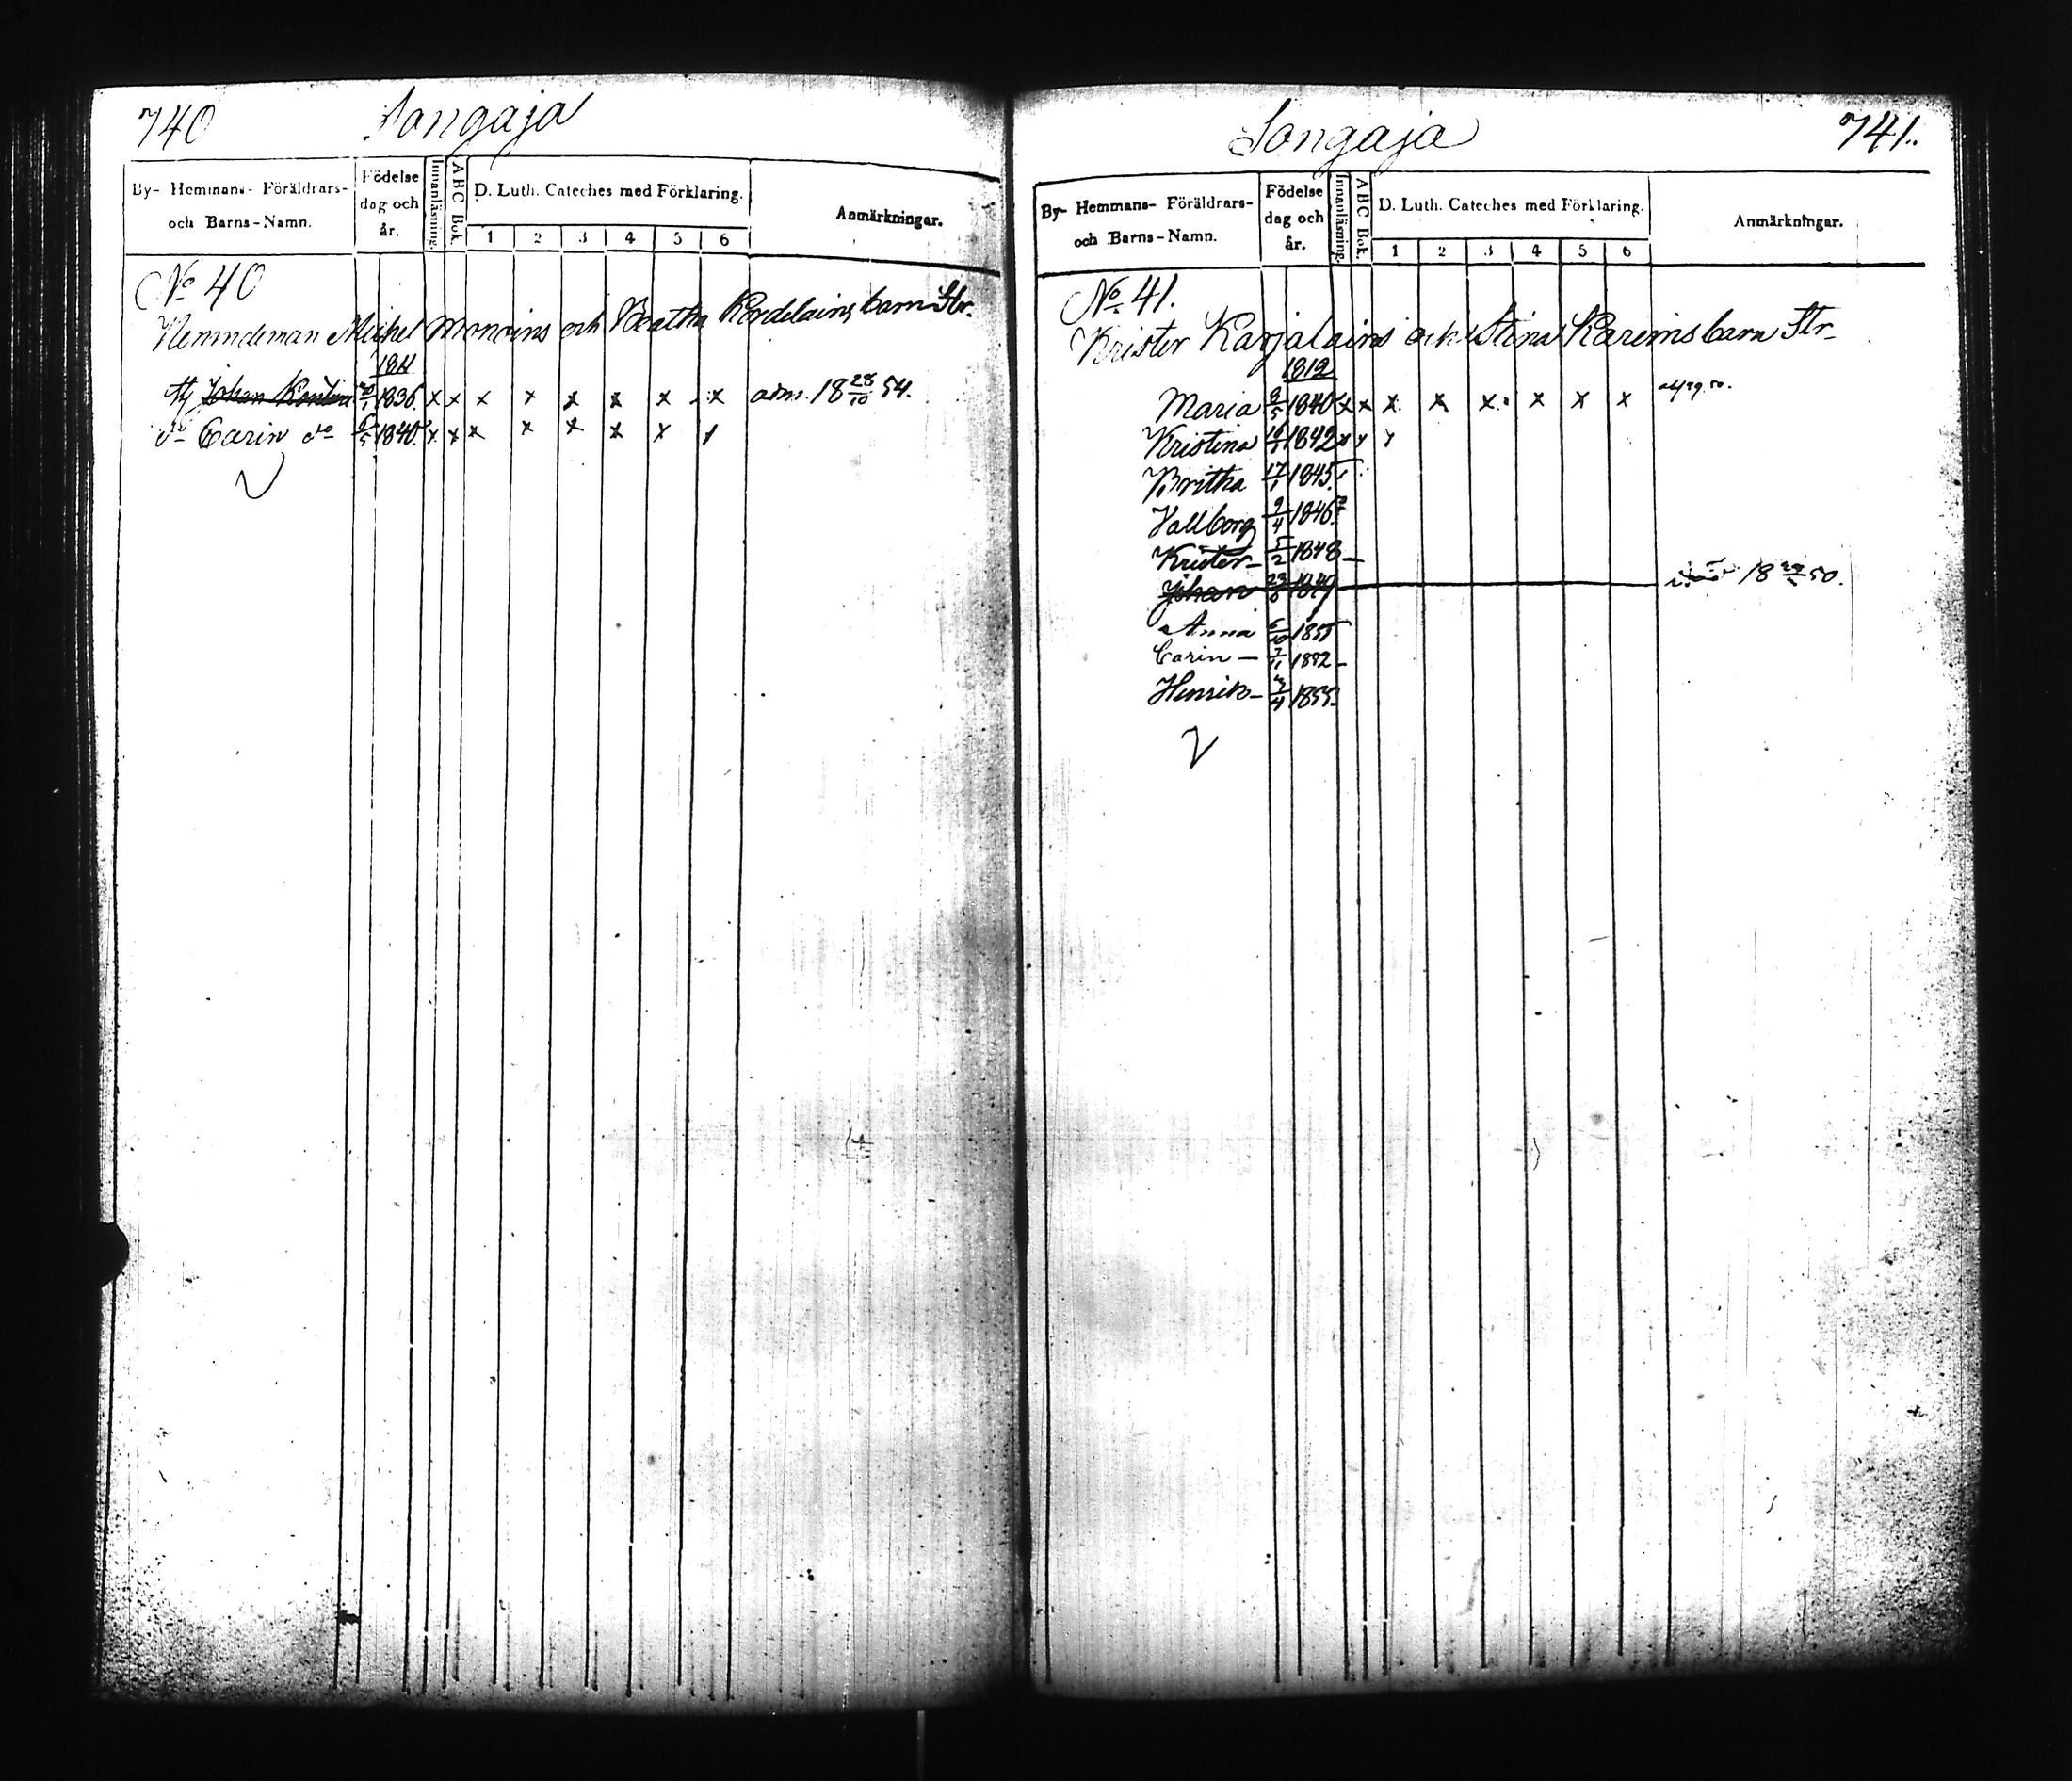 740 Songaja
By- Hemmans- Föräldrars- och Barns-Namn. Födelse dag och år. Innanläsning. ABC Bok. D. Luth. Cateches med Förklaring. Anmärkningar.
1 2 3 4 5 6
No 40
Nemndeman Michel Monoins och Beatha Kordelains barn Str.
1811
Johan 1836. x x x x x x x x adm. 18 28/10 54.
do Carin do 6/5 1840. x x x x x x x x
Songaja 741.
By- Hemmans- Föräldrars- och Barns-Namn. Födelse dag och år. Innanläsning. ABC Bok. D. Luth. Cateches med Förklaring. Anmärkningar.
1 2 3 4 5 6
No 41.
Krister Karjalains och Stina Kareins barn Str-
1812
Maria 1840 x x x x x x x x
Kristina 1842 x x x
Britha 17/1 1845
Vallborg 9/4 1846
Krister- 5/2 1848 -
Johan 1849 18 50.
Anna 6/10 1851
Carin - 7/11 1852 -
Henrik - 3/4 1855.